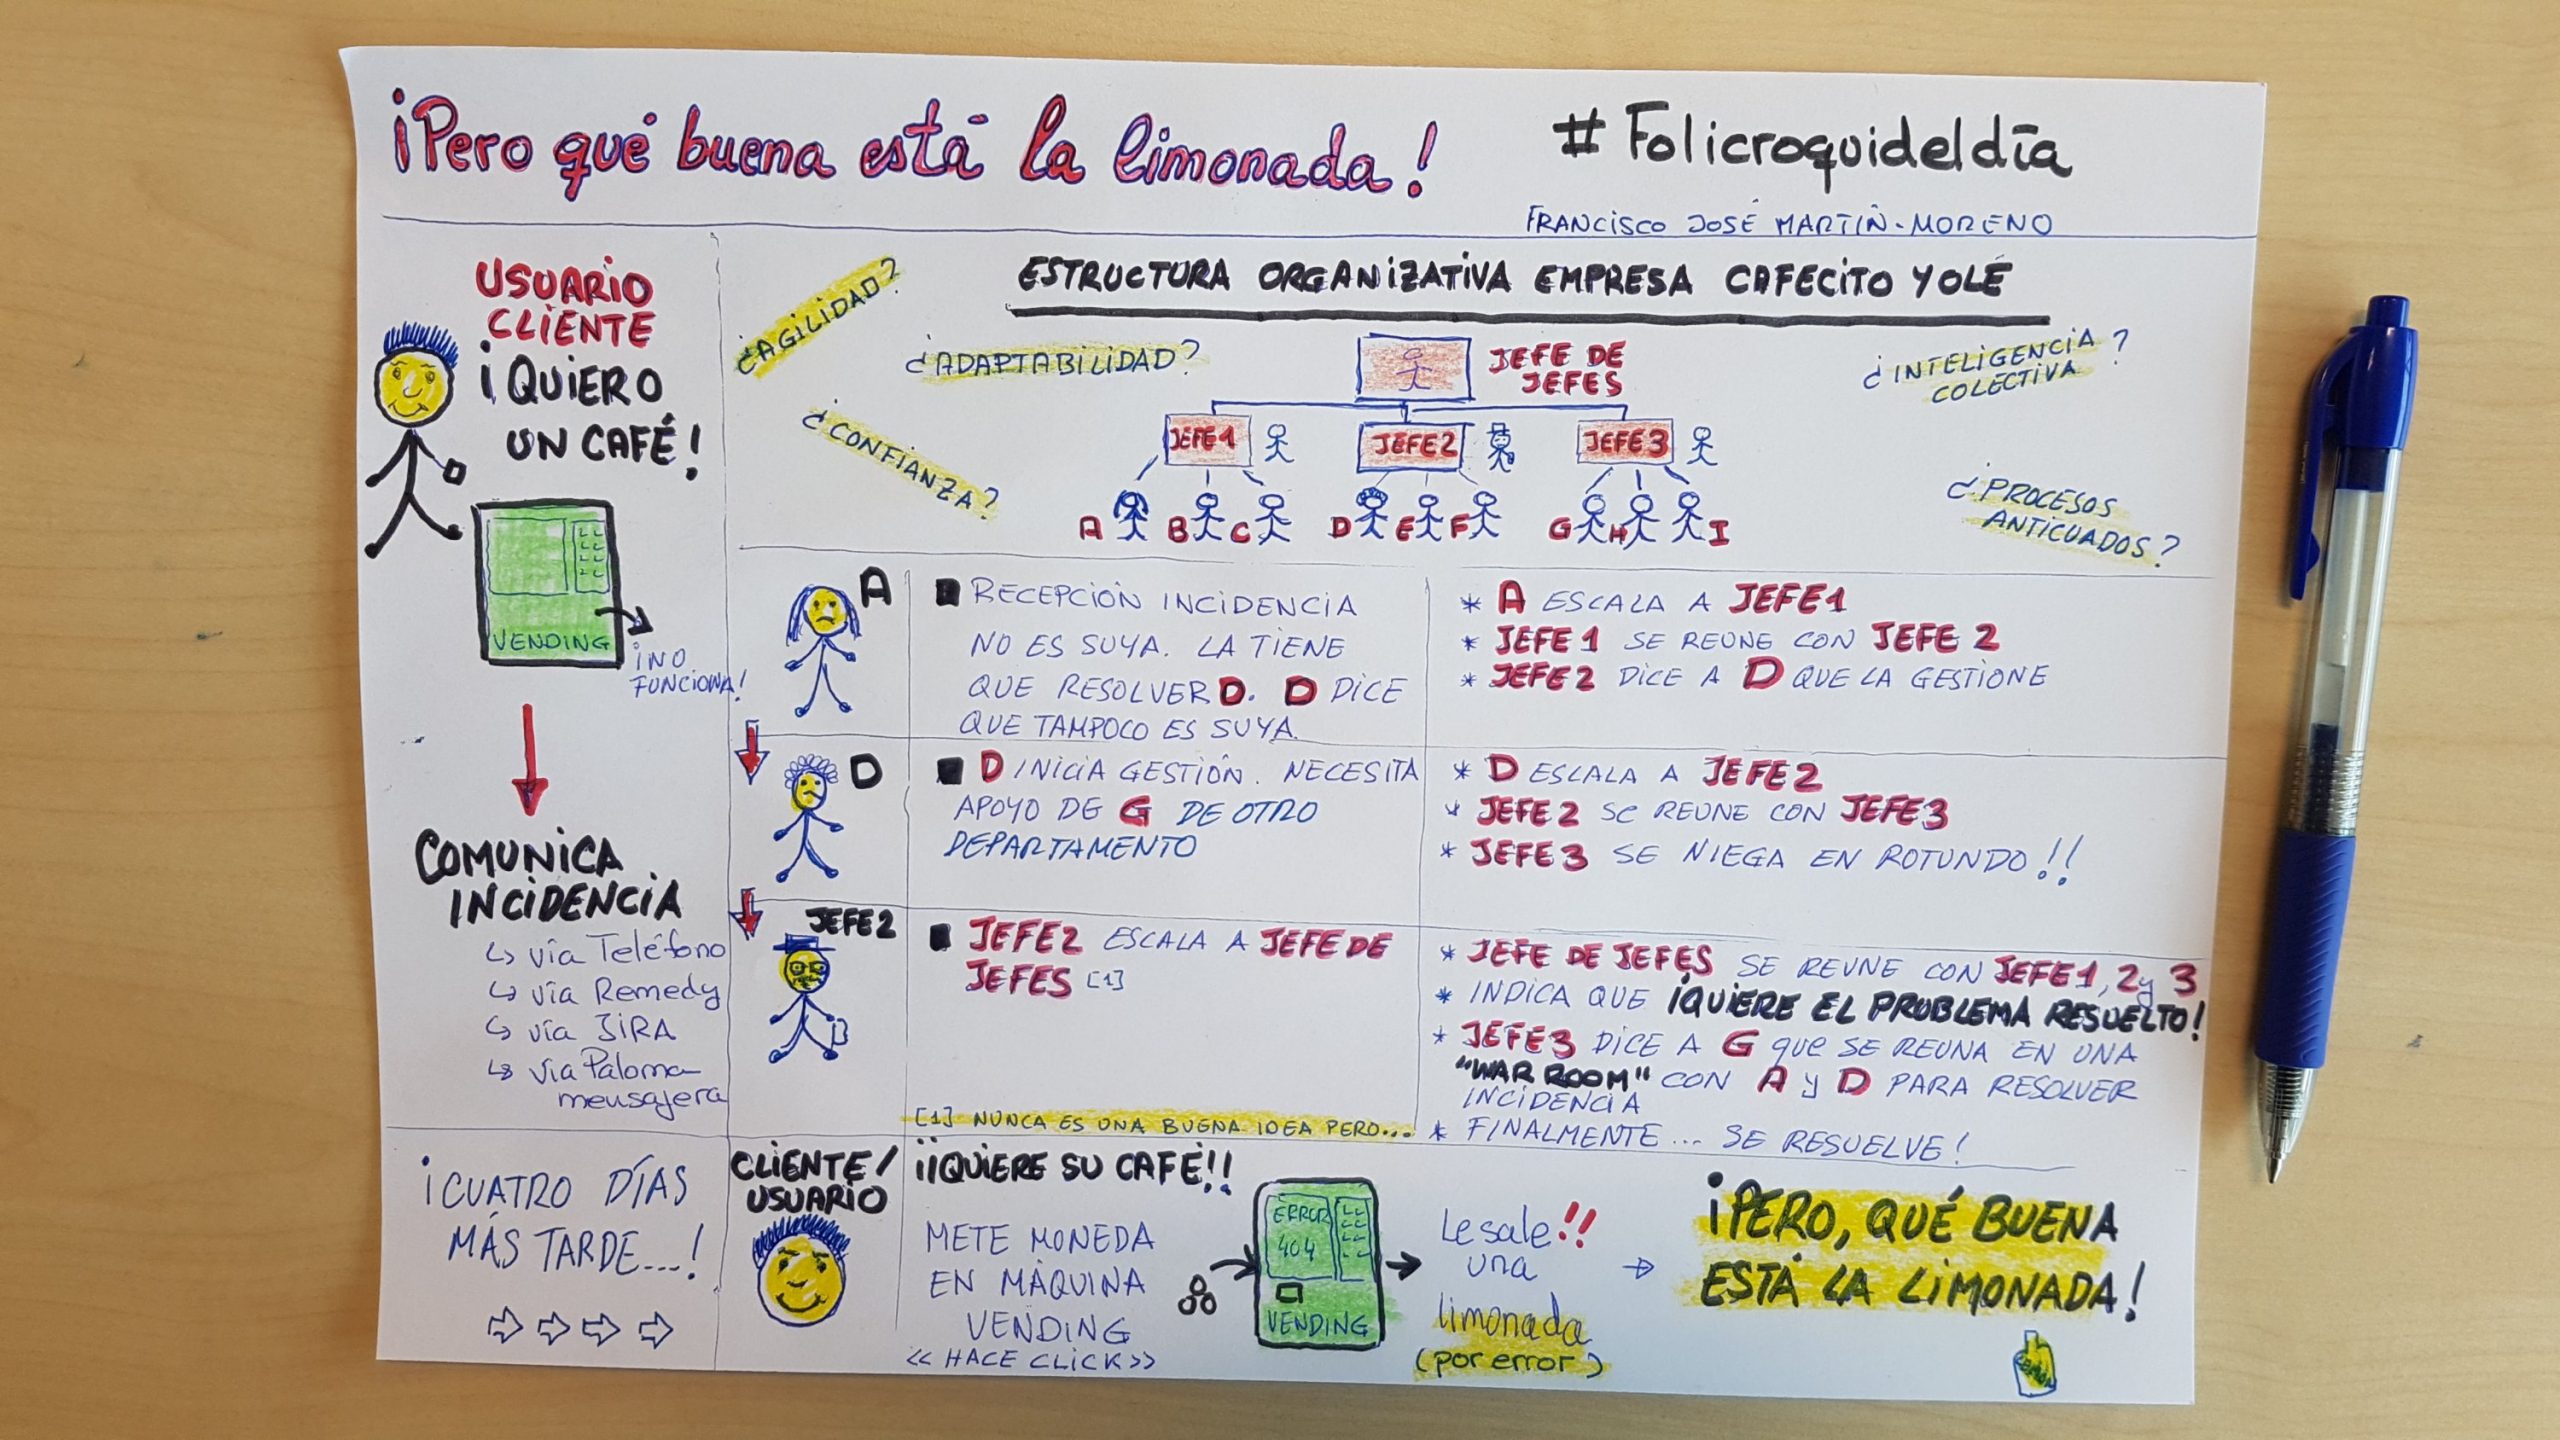 ¡Pero qué buena está la limonada!
#Folicroquideldía
FRANCISCO JOSÉ MARTÍN-MORENO
USUARIO
CLIENTE
¡QUIERO
UN CAFÉ!
VENDING
¡NO
FUNCIONA!
COMUNICA
INCIDENCIA
↳ vía Teléfono
↳ vía Remedy
↳ vía JIRA
↳ vía Paloma
mensajera
ESTRUCTURA ORGANIZATIVA EMPRESA CAFECITO Y OLÉ
¿AGILIDAD?
¿ADAPTABILIDAD?
¿CONFIANZA?
¿INTELIGENCIA
COLECTIVA?
¿PROCESOS
ANTICUADOS?
JEFE DE
JEFES
JEFE1
JEFE2
JEFE3
A B C D E F G H I
A
■ RECEPCIÓN INCIDENCIA
NO ES SUYA. LA TIENE
QUE RESOLVER D. D DICE
QUE TAMPOCO ES SUYA.
* A ESCALA A JEFE1
* JEFE1 SE REUNE CON JEFE 2
* JEFE2 DICE A D QUE LA GESTIONE
D
■ D INICIA GESTIÓN. NECESITA
APOYO DE G DE OTRO
DEPARTAMENTO
* D ESCALA A JEFE2
* JEFE2 SE REUNE CON JEFE3
* JEFE3 SE NIEGA EN ROTUNDO!!
JEFE2
■ JEFE2 ESCALA A JEFE DE
JEFES [1]
[1] NUNCA ES UNA BUENA IDEA PERO...
* JEFE DE JEFES SE REUNE CON JEFE1, 2 y 3
* INDICA QUE ¡QUIERE EL PROBLEMA RESUELTO!
* JEFE3 DICE A G que SE REUNA EN UNA
"WAR ROOM" CON A y D PARA RESOLVER
INCIDENCIA
* FINALMENTE... SE RESUELVE!
¡CUATRO DÍAS
MÁS TARDE....!
CLIENTE/
USUARIO
¡¡QUIERE SU CAFÉ!!
METE MONEDA
EN MÁQUINA
VENDING
<< HACE CLICK>>
ERROR
404
VENDING
Le sale!!
una
limonada
(por error)
¡PERO, QUÉ BUENA
ESTÁ LA LIMONADA!